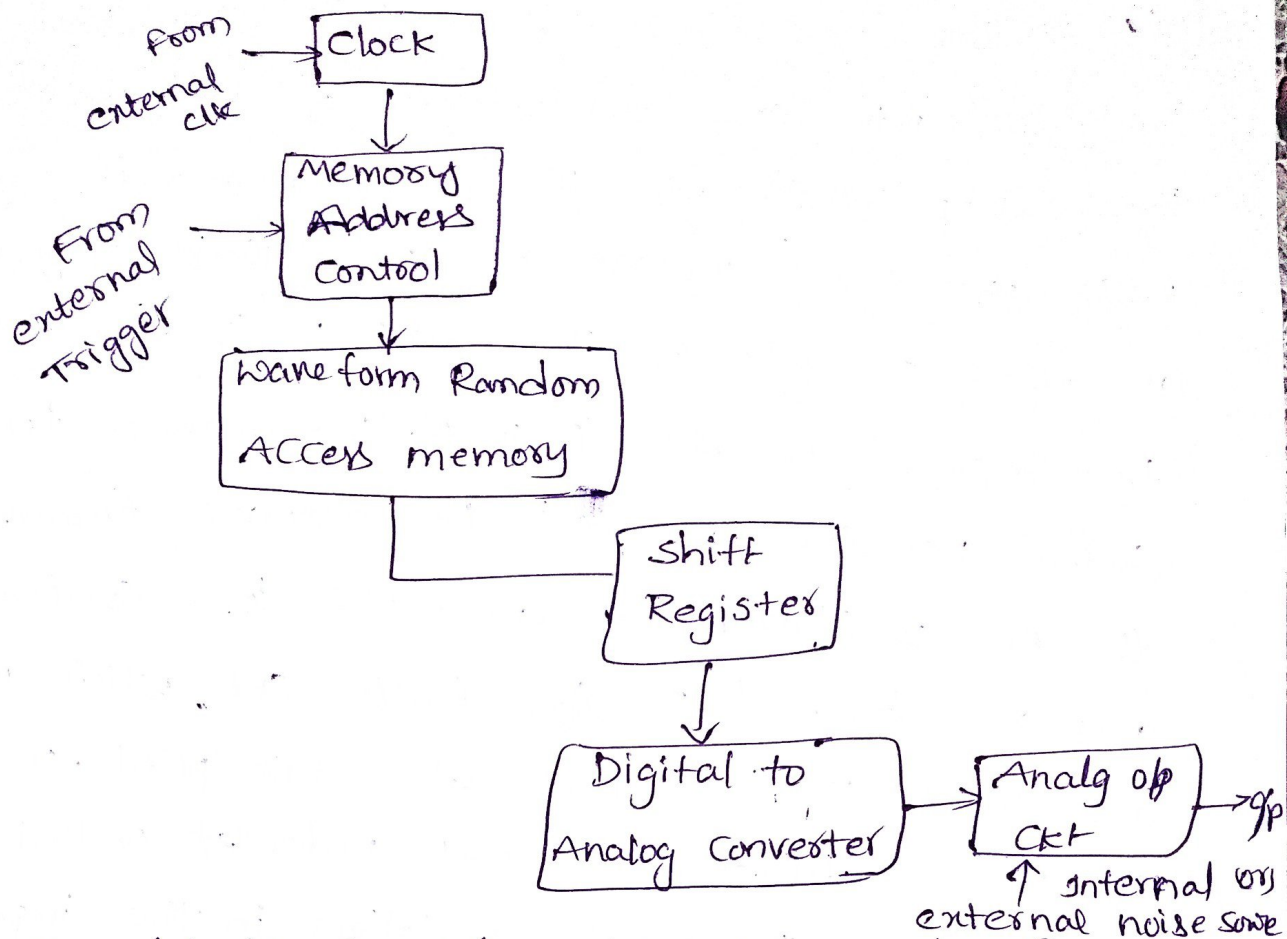 From
external
clk
Clock
From
external
Trigger
Memory
Address
Control
Waveform Random
Access memory
Shift
Register
Digital to
Analog Converter
Analg o/p
Ckt
o/p
Internal or
external noise